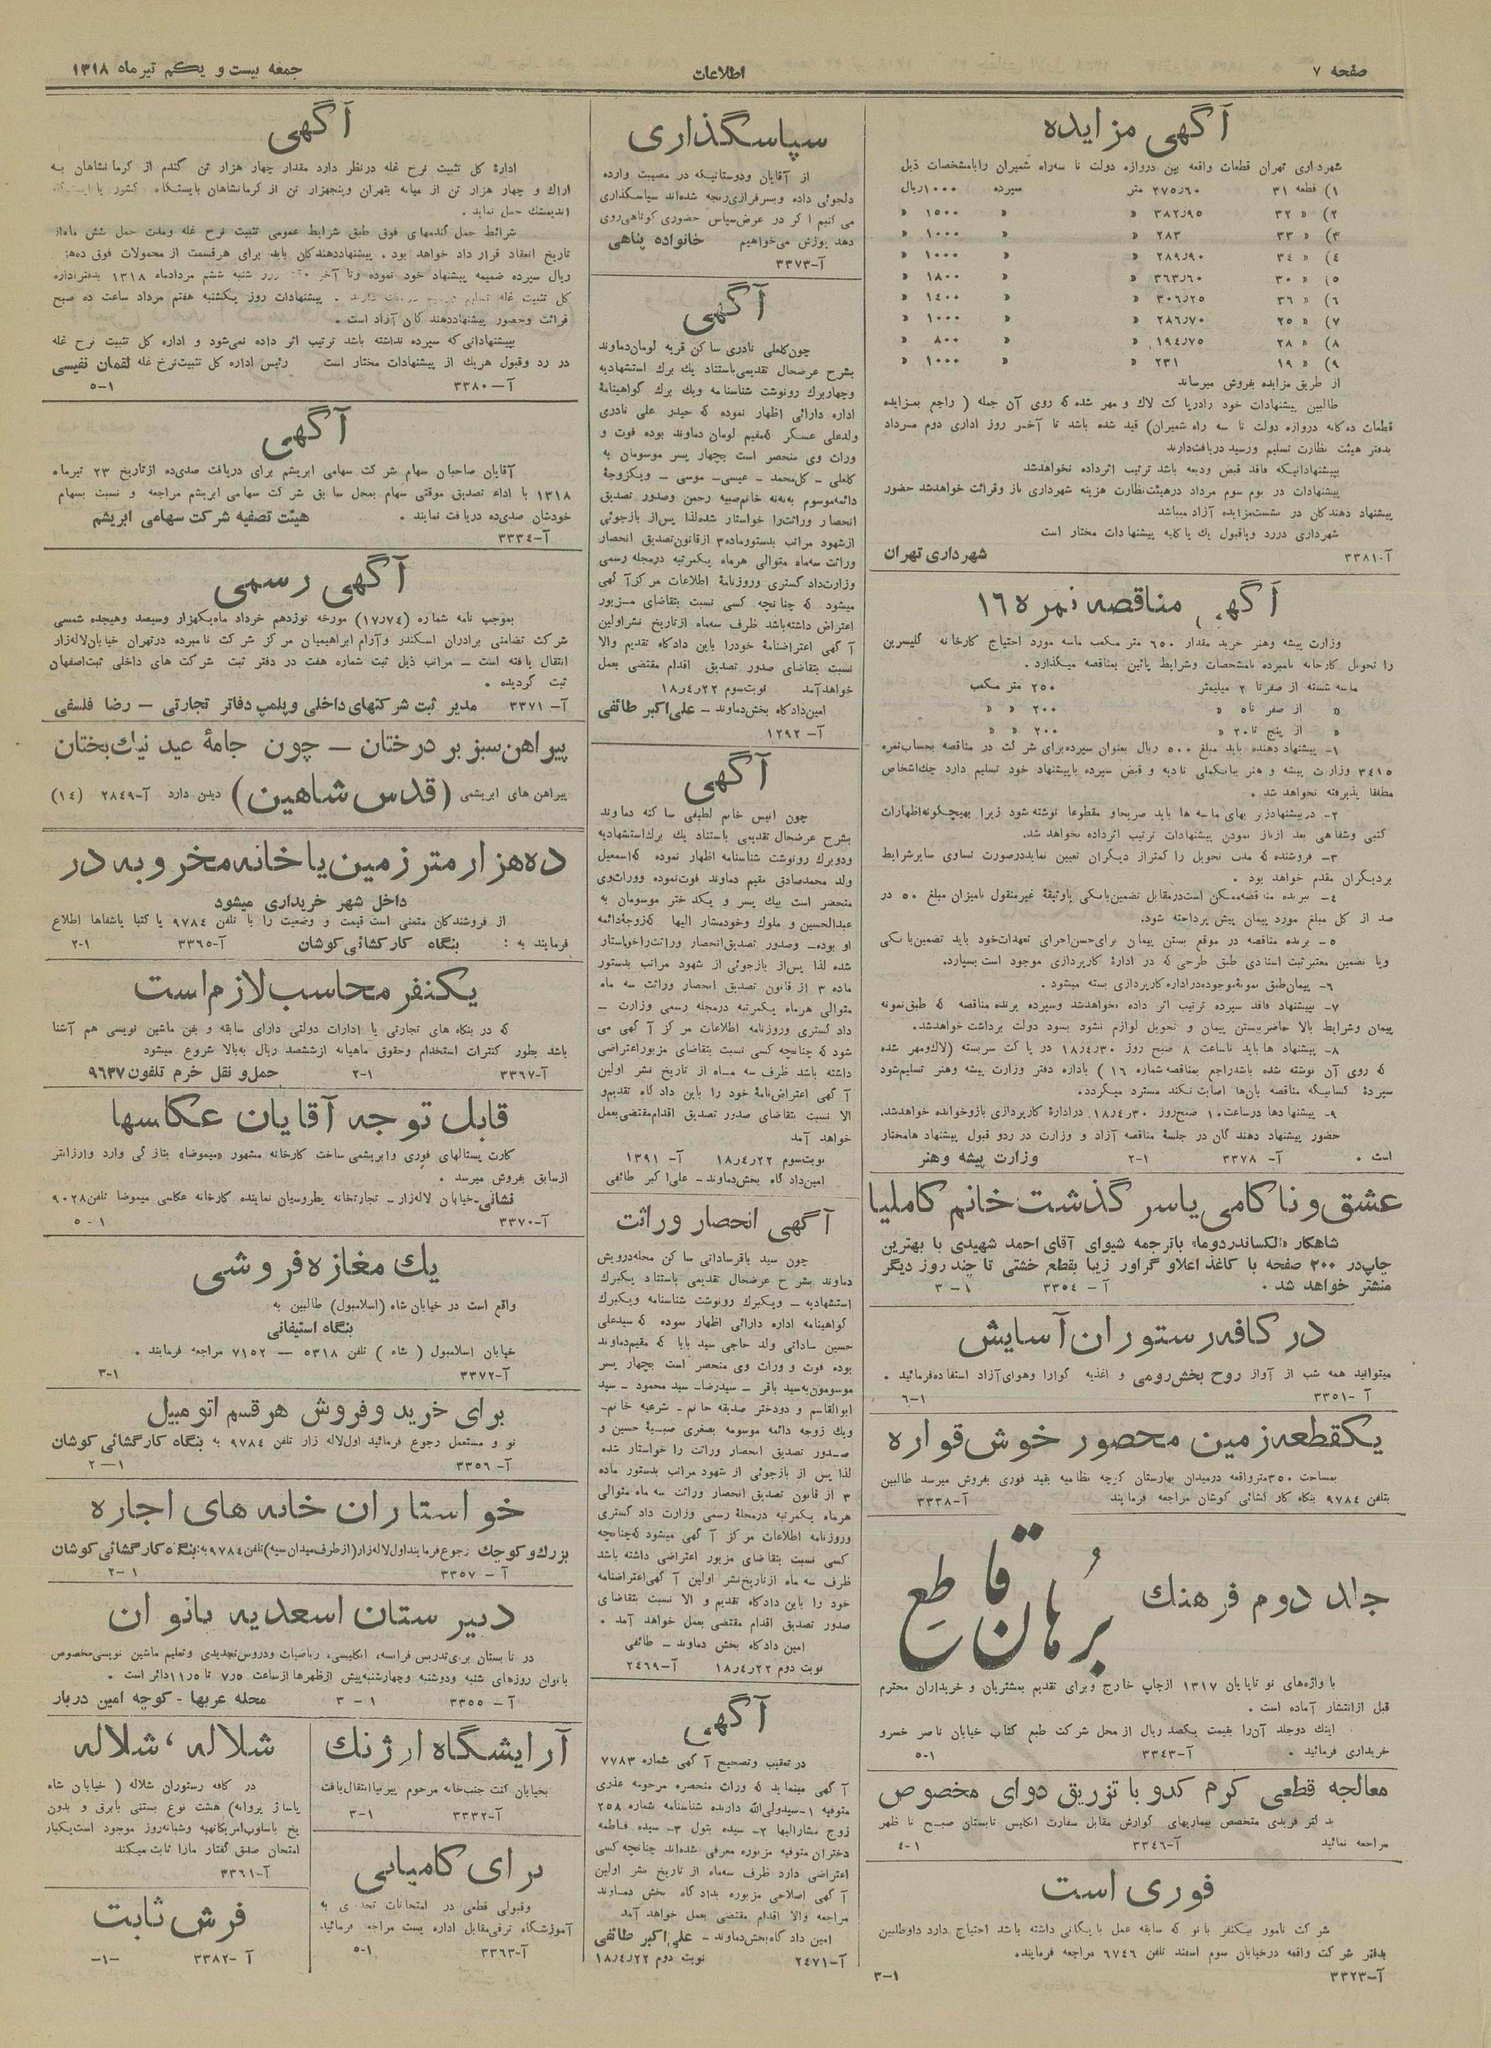 صفحه ۷
اطلاعات
جمعه بیست و یکم تیر ماه ۱۳۱۸
آگهی مزایده
شهرداری تهران قطعات واقعه بین دروازه دولت تا سه‌راه شمیران را بامشخصات ذیل
۱) قطعه ۳۱ ۲۷۵٫۶۰ متر سپرده ۱۰۰۰ریال
۲) « ۳۲ ۳۸۲٫۹۵ « « ۱۵۰۰ «
۳) « ۳۳ ۲۸۳ « « ۱۰۰۰ «
۴) « ۳۴ ۲۸۹٫۹۰ « « ۱۰۰۰ «
۵) « ۳۰ ۳۶۳٫۶۰ « « ۱۸۰۰ «
۶) « ۳۶ ۳۰۶٫۲۵ « « ۱۴۰۰ «
۷) « ۲۵ ۲۸۶٫۷۰ « « ۱۰۰۰ «
۸) « ۲۸ ۱۹۴٫۷۵ « « ۸۰۰ «
۹) « ۱۹ ۲۳۱ « « ۱۰۰۰ «
از طریق مزایده بفروش میرساند
طالبین پیشنهادات خود را درپاکت لاك و مهر شده که روی آن جمله ( راجع بمزایده
قطعات ده‌گانه دروازه دولت تا سه راه شمیران) قید شده باشد تا آخر روز اداری دوم مرداد
بدفتر هیئت نظارت تسلیم ورسید دریافت‌دارند
بپیشنهاداتیکه فاقد قبض ودیعه باشد ترتیب اثرداده نخواهدشد
پیشنهادات در یوم سوم مرداد درهیئت‌نظارت هزینه شهرداری باز وقرائت خواهدشد حضور
پیشنهاد دهندگان در نشست‌مزایده آزاد میباشد
شهرداری دررد ویاقبول يك یاکلیه پیشنهادات مختار است
آ-۳۳۸۱ شهرداری تهران
آگهی مناقصه نمره ۱۶
وزارت پیشه وهنر خرید مقدار ۶۵۰ متر مکعب ماسه مورد احتیاج کارخانه گلیسرین
را تحویل کارخانه نامبرده بامشخصات وشرایط پائین بمناقصه میگذارد.
ماسه شسته از صفر تا ۲ میلیمتر ۲۵۰ متر مکعب
« از صفر تا۵ « ۲۰۰ « «
« از پنج تا۲۰ « ۲۰۰ « «
۱- پیشنهاد دهنده باید مبلغ ۵۰۰ ریال بعنوان سپرده‌برای شرکت در مناقصه بحساب‌نمره
۳۴۱۵ وزارت پیشه و هنر ببانک‌ملی تادیه و قبض سپرده باپیشنهاد خود تسلیم دارد چك‌اشخاص
مطلقا پذیرفته نخواهد شد.
۲- درپیشنهادزیر بهای ماسه ها باید صریحاو مقطوعا نوشته شود زیرا بهیچگونه‌اظهارات
کتبی وشفاهی بعد ازباز نمودن پیشنهادات ترتیب اثرداده نخواهد شد.
۳- فروشنده که مدت تحویل را کمتراز دیگران تعیین نماید درصورت تساوی سایرشرایط
بردیگران مقدم خواهد بود .
۴- برنده مناقصه‌ممکن است‌درمقابل تضمین‌بانکی یاوثیقهٔ غیرمنقول بامیزان مبلغ ۵۰ در
صد از کل مبلغ مورد پیمان پیش پرداخته شود.
۵- برنده مناقصه در موقع بستن پیمان برای‌حسن‌اجرای تعهدات‌خود باید تضمین‌بانکی
ویا تضمین معتبرثبت اسنادی طبق طرحی که در ادارهٔ کارپردازی موجود است بسپارد.
۶- پیمان‌طبق نمونهٔ‌موجوده‌دراداره‌کارپردازی بسته میشود .
۷- پیشنهاد فاقد سپرده ترتیب اثر داده نخواهدشد وسپرده برنده مناقصه که طبق‌نمونه
پیمان وشرایط بالا حاضربه‌بستن پیمان و تحویل لوازم نشود بسود دولت برداشت خواهدشد.
۸- پیشنهاد ها باید تاساعت ۸ صبح روز ۱۸٫۴٫۳۰ در پاکت سربسته (لاك‌ومهر شده
که روی آن نوشته شده باشدراجع بمناقصه‌شماره ۱۶ ) باداره دفتر وزارت پیشه وهنر تسلیم‌شود
سپردهٔ کسانیکه مناقصه بآن‌ها اصابت نکند مسترد میگردد.
۹- پیشنهادها درساعت۱۰ صبح‌روز ۱۸٫۴٫۳۰ درادارهٔ کارپردازی بازوخوانده خواهدشد.
حضور پیشنهاد دهندگان در جلسهٔ مناقصه آزاد و وزارت در ردو قبول پیشنهاد هامختار
است . آ- ۳۳۷۸ ۱-۲ وزارت پیشه وهنر
عشق و ناکامی یا سرگذشت خانم کاملیا
شاهکار «الکساندردوما» باترجمه شیوای آقای احمد شهیدی با بهترین
چاپ‌در ۲۰۰ صفحه با کاغذ اعلاو گراور زیبا بقطع خشتی تا چند روز دیگر
منتشر خواهد شد . آ- ۳۳۵۴ ۱-۳
در کافه رستوران آسایش
میتوانید همه شب از آواز روح بخش‌رومی و اغذیه گوارا وهوای‌آزاد استفاده‌فرمائید .
آ-۳۳۵۱ ۱-۶
یکقطعه‌زمین محصور خوش‌قواره
بمساحت ۳۵۰مترواقعه درمیدان بهارستان کوچه نظامیه بقید فوری بفروش میرسد طالبین
بتلفن ۹۷۸۴ بنگاه کارگشائی کوشان مراجعه فرمایند آ-۳۳۳۸
جلد دوم فرهنك برهان قاطع
با واژه‌های نو تاپایان ۱۳۱۷ ازچاپ خارج وبرای تقدیم بمشتریان و خریداران محترم
قبل ازانتشار آماده است .
اینك دوجلد آن‌را بقیمت یکصد ریال از محل شرکت طبع کتاب خیابان ناصر خسرو
خریداری فرمائید . آ-۳۳۴۳ ۱-۵
معالجه قطعی کرم کدو با تزریق دوای مخصوص
بدکتر فریدی متخصص بیماریهای گوارش مقابل سفارت انگلیس تابستان صبح تا ظهر
مراجعه نمائید آ-۳۳۴۶ ۱-۴
فوری است
شرکت نامور بیکنفر بانو که سابقه عمل بایگانی داشته باشد احتیاج دارد داوطلبین
بدفتر شرکت واقعه درخیابان سوم اسفند تلفن ۶۷۴۶ مراجعه فرمایند.
آ-۳۳۲۳ ۱-۳
سپاسگذاری
از آقایان ودوستانیکه در مصیبت وارده
دلجوئی داده وبسرفرازی‌رنجه شده‌اند سپاسگذاری
می کنیم اگر در عرض‌سپاس حضوری کوتاهی‌روی
دهد پوزش می‌خواهیم خانواده پناهی
آ-۳۳۷۳
آگهی
چون‌کلعلی نادری ساکن قریه لومان‌دماوند
بشرح عرضحال تقدیمی باستناد يك برك استشهادیه
وچهاربرك رونوشت شناسنامه ويك برك گواهینامهٔ
اداره دارائی اظهار نموده که حیدر علی نادری
ولدعلی عسگر که‌مقیم لومان دماوند بوده فوت و
وراث وی منحصر است بچهار پسر موسومان به
کلعلی - گل‌محمد - عیسی- موسی - ویکزوجهٔ
دائمه‌موسوم به‌ننه خانم‌صبیه رحمن وصدور تصدیق
انحصار وراثت‌را خواستار شده‌لذا پس‌از بازجوئی
ازشهود مراتب بدستورماده۳ ازقانون‌تصدیق انحصار
وراثت سه‌ماه متوالی هرماه یکمرتبه درمجله رسمی
وزارت‌دادگستری وروزنامهٔ اطلاعات مرکزآگهی
میشود که چنانچه کسی نسبت بتقاضای مزبور
اعتراض داشته‌باشد ظرف سه‌ماه ازتاریخ نشراولین
آگهی اعتراضنامهٔ خودرا باین دادگاه تقدیم والا
نسبت بتقاضای صدور تصدیق اقدام مقتضی بعمل
خواهدآمد نوبت‌سوم ۱۸٫۴٫۲۲
امین‌دادگاه بخش‌دماوند - علی‌اکبر طائفی
آ- ۱۲۹۲
آگهی
چون انیس خانم لطیفی ساکنه دماوند
بشرح عرضحال تقدیمی باستناد يك برك‌استشهادیه
ودوبرك رونوشت شناسنامه اظهار نموده که‌اسمعیل
ولد محمدصادق مقیم دماوند فوت‌نموده ووراث‌وی
منحضر است بيك پسر و یکدختر موسومان به
عبدالحسین و ملوك وخودمستار الیها که‌زوجهٔ‌دائمه
او بوده- وصدور تصدیق‌انحصار وراثت‌راخواستار
شده لذا پس‌از بازجوئی از شهود مراتب بدستور
ماده ۳ از قانون تصدیق انحصار وراثت سه ماه
متوالی هرماه یکمرتبه درمجله رسمی وزارت -
دادگستری وروزنامه اطلاعات مرکز آگهی می
شود که چنانچه کسی نسبت بتقاضای مزبوراعتراضی
داشته باشد ظرف سه ماه از تاریخ نشر اولین
آگهی اعتراض‌نامهٔ خود را باین دادگاه تقدیم‌و
الا نسبت بتقاضای صدور تصدیق اقدام‌مقتضی‌بعمل
خواهد آمد
نوبت‌سوم ۱۸٫۴٫۲۲ آ- ۱۳۹۱
امین‌دادگاه بخش‌دماوند- علی‌اکبر طائفی
آگهی انحصار وراثت
چون سید باقرساداتی ساکن محله‌درویش
دماوند بشرح عرضحال تقدیمی باستناد یکبرك
استشهادیه - ویکبرك رونوشت شناسنامه ویکبرك
گواهینامه اداره دارائی اظهار نموده که سیدعلی
حسین ساداتی ولد حاجی سید بابا که مقیم‌دماوند
بوده فوت و وراث وی منحصر است بچهار پسر
موسومون‌به‌سید باقر - سیدرضا- سید محمود - سید
ابوالقاسم و دودختر صدیقه خانم - شرعیه خانم-
ويك زوجه دائمه موسومه بصغری صبیهٔ حسین و
صدور تصدیق انحصار وراثت را خواستار شده
لذا پس از بازجوئی از شهود مراتب بدستور ماده
۳ از قانون تصدیق انحصار وراثت سه ماه متوالی
هرماه یکمرتبه درمجلهٔ رسمی وزارت دادگستری
وروزنامه اطلاعات مرکز آگهی میشود که‌چنانچه
کسی نسبت بتقاضای مزبور اعتراضی داشته باشد
ظرف سه ماه ازتاریخ‌نشر اولین آگهی‌اعتراضنامه
خود را باین دادگاه تقدیم و الا نسبت بتقاضای
صدور تصدیق اقدام مقتضی بعمل خواهد آمد .
امین دادگاه بخش دماوند - طائفی
نوبت دوم ۱۸٫۴٫۲۲ آ-۲۴۶۹
آگهی
در تعقیب وتصحیح آگهی شماره ۷۷۸۳
آگهی مینماید که وراث منحصره مرحومه عذری
متوفیه ۱-سیدولی‌الله دارنده شناسنامه شماره ۲۵۸
زوج مشارالیها ۲- سیده بتول ۳- سیده فاطمه
دختران متوفیه مزبوره معرفی شده‌اند چنانچه کسی
اعتراضی دارد ظرف سه‌ماه از تاریخ نشر اولین
آگهی اصلاحی مزبوره بدادگاه بخش دماوند
مراجعه والا اقدام مقتضی بعمل خواهد آمد
امین دادگاه‌بخش‌دماوند - علی‌اکبر طائفی
آ-۲۴۷۱ نوبت دوم ۱۸٫۴٫۲۲
آگهی
ادارهٔ کل تثبیت نرخ غله درنظر دارد مقدار چهار هزار تن گندم از کرمانشاهان به
اراك و چهار هزار تن از میانه بتهران وپنجهزار تن از کرمانشاهان بایستگاه کشور یا ایستگاه
اندیمشك حمل نماید .
شرائط حمل گندمهای فوق طبق شرایط عمومی تثبیت نرخ غله ومدت حمل شش ماه‌از
تاریخ انعقاد قرار داد خواهد بود . پیشنهاددهندگان باید برای هرقسمت از محمولات فوق ده
ریال سپرده ضمیمه پیشنهاد خود نموده وتا آخر روز شنبه ششم مردادماه ۱۳۱۸ بدفتراداره
کل تثبیت غله تسلیم دارند . پیشنهادات روز یکشنبه هفتم مرداد ساعت ده صبح
قرائت وحضور پیشنهاددهندگان آزاد است .
بپیشنهاداتی که سپرده نداشته باشد ترتیب اثر داده نمی‌شود و اداره کل تثبیت نرخ غله
در رد وقبول هریك از پیشنهادات مختار است رئیس اداره کل تثبیت‌نرخ غله لقمان نفیسی
آ-۳۳۸۰ ۱-۵
آگهی
آقایان صاحبان سهام شرکت سهامی ابریشم برای دریافت صدی‌ده ازتاریخ ۲۳ تیرماه
۱۳۱۸ با اداء تصدیق موقتی سهام بمحل سابق شرکت سهامی ابریشم مراجعه و نسبت بسهام
خودشان صدی‌ده دریافت نمایند . هیئت تصفیه شرکت سهامی ابریشم
آ-۳۳۳۴
آگهی رسمی
بموجب نامه شماره (۱۷٫۷۴) مورخه نوزدهم خرداد ماه‌یکهزار وسیصد وهیجده شمسی
شرکت تضامنی برادران اسکندر وآرام ابراهیمیان مرکز شرکت نامبرده درتهران خیابان‌لاله‌زار
انتقال یافته است - مراتب ذیل ثبت شماره هفت در دفتر ثبت شرکت های داخلی ثبت‌اصفهان
ثبت گردیده .
آ- ۳۳۷۱ مدیر ثبت شرکتهای داخلی و پلمپ دفاتر تجارتی - رضا فلسفی
پیراهن سبز بر درختان - چون جامهٔ عید نيك‌بختان
پیراهن های ابریشمی (قدس شاهین) دیدن دارد آ-۲۸۴۹ (۱۴)
ده‌هزار متر زمین یا خانه‌مخروبه در
داخل شهر خریداری میشود
از فروشندگان متمنی است قیمت و وضعیت را با تلفن ۹۷۸۴ یا کتبا یاشفاها اطلاع
فرمایند به : بنگاه کارگشائی کوشان آ-۳۳۶۵ ۱-۲
یکنفر محاسب لازم است
که در بنگاه های تجارتی یا ادارات دولتی دارای سابقه و بفن ماشین نویسی هم آشنا
باشد بطور کنترات استخدام وحقوق ماهیانه ازششصد ریال ببالا شروع میشود
آ-۳۳۶۷ ۱-۲ حمل و نقل خرم تلفون ۹۶۳۷
قابل توجه آقایان عکاسها
کارت پستالهای فوری وابریشمی ساخت کارخانه مشهور «میموضا» بتازگی وارد وارزانتر
ازسابق بفروش میرسد .
نشانی-خیابان لاله‌زار- تجارتخانه پطروسیان نماینده کارخانه عکاسی میموضا تلفن۹۰۲۸
آ-۳۳۷۰ ۱-۵
يك مغازه فروشی
واقع است در خیابان شاه (اسلامبول) طالبین به
بنگاه استیفانی
خیابان اسلامبول ( شاه ) تلفن ۵۳۱۸ - ۷۱۵۲ مراجعه فرمایند .
آ-۳۳۷۲ ۱-۳
برای خرید و فروش هر قسم اتومبیل
نو و مستعمل رجوع فرمائید اول‌لاله زار تلفن ۹۷۸۴ به بنگاه کارگشائی کوشان
آ- ۳۳۵۶ ۱-۲
خواستاران خانه های اجاره
بزرك و کوچك رجوع فرمایند اول لاله‌زار(ازطرف‌میدان‌سپه)تلفن ۹۷۸۴ به: بنگاه‌کارگشائی‌کوشان
آ- ۳۳۵۷ ۱-۲
دبیرستان اسعدیه بانوان
در تابستان برای‌تدریس فرانسه، انگلیسی، ریاضیات ودروس‌تجدیدی وتعلیم ماشین نویسی‌مخصوص
بانوان روزهای شنبه ودوشنبه وچهارشنبه‌پیش ازظهرها ازساعت ۷٫۵ تا ۱۱٫۵دائر است .
آ- ۳۳۵۵ ۱-۳ محله عربها- کوچه امین دربار
آرایشگاه ارژنك
بخیابان کنت جنب‌خانه مرحوم پیرنیاانتقال‌یافت
آ-۳۳۳۲ ۱-۳
برای کامیابی
وقبولی قطعی در امتحانات تجدیدی به
آموزشگاه ترقی‌مقابل اداره پست مراجعه فرمائید
آ-۳۳۶۳ ۱-۵
شلاله ، شلاله
در کافه رستوران شلاله ( خیابان شاه
پاساژ پروانه) هشت نوع بستنی بابرق و بدون
یخ باسلوب‌امریکاتهیه وشبانه‌روز موجود است‌یکبار
امتحان صدق گفتار مارا ثابت میکند
آ-۳۳۶۱
فرش ثابت
آ-۳۳۸۲ -۱-